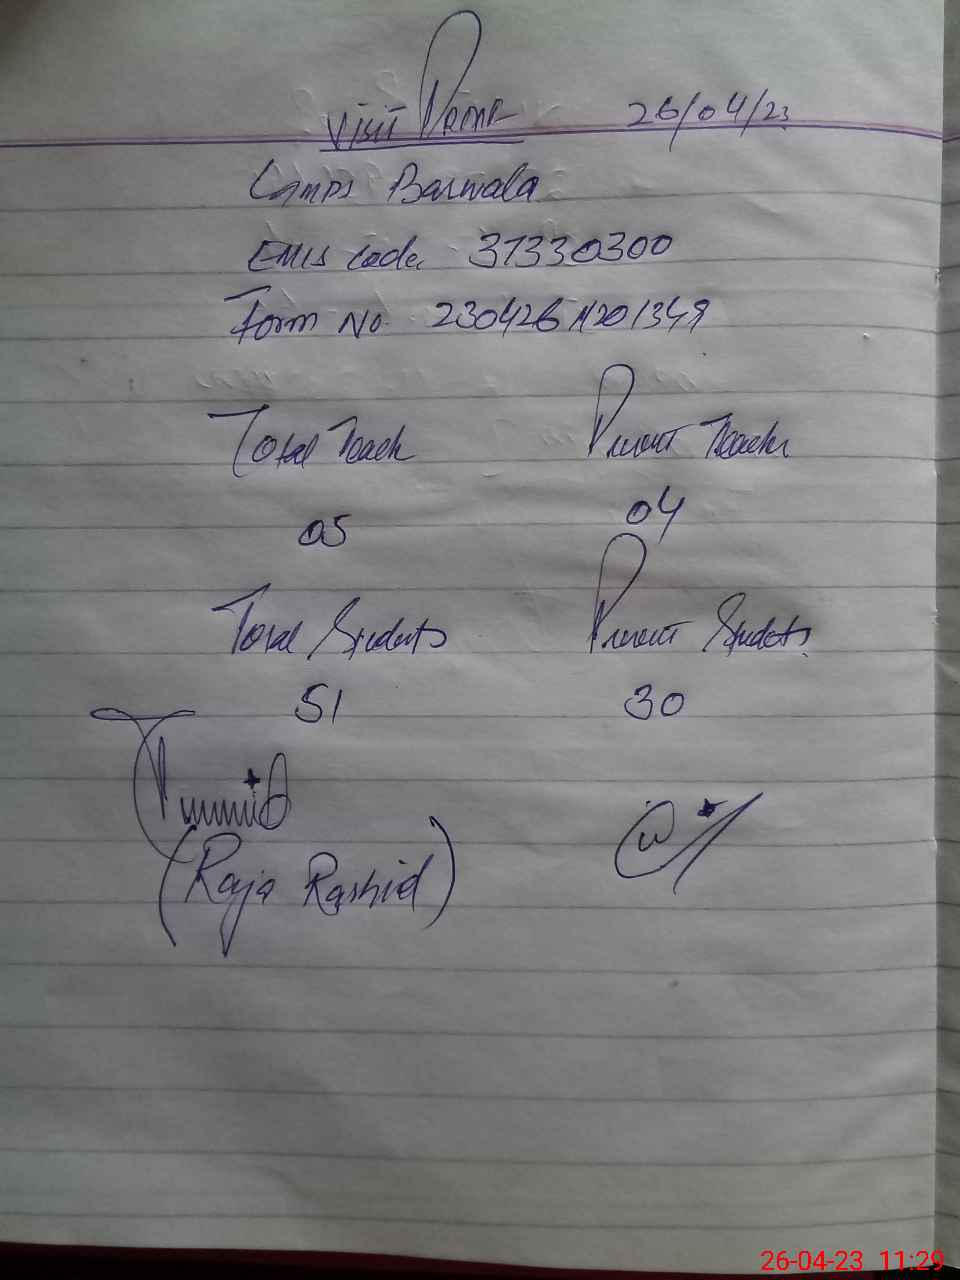 Visit Performa 26/04/23
GMPS Barwala
EMIS Code 37330300
Form No. 230426
Total Teach Present Teacher
05 04
Total Students Present Students
51 30
(Raja Rashid)
26-04-23 11:29